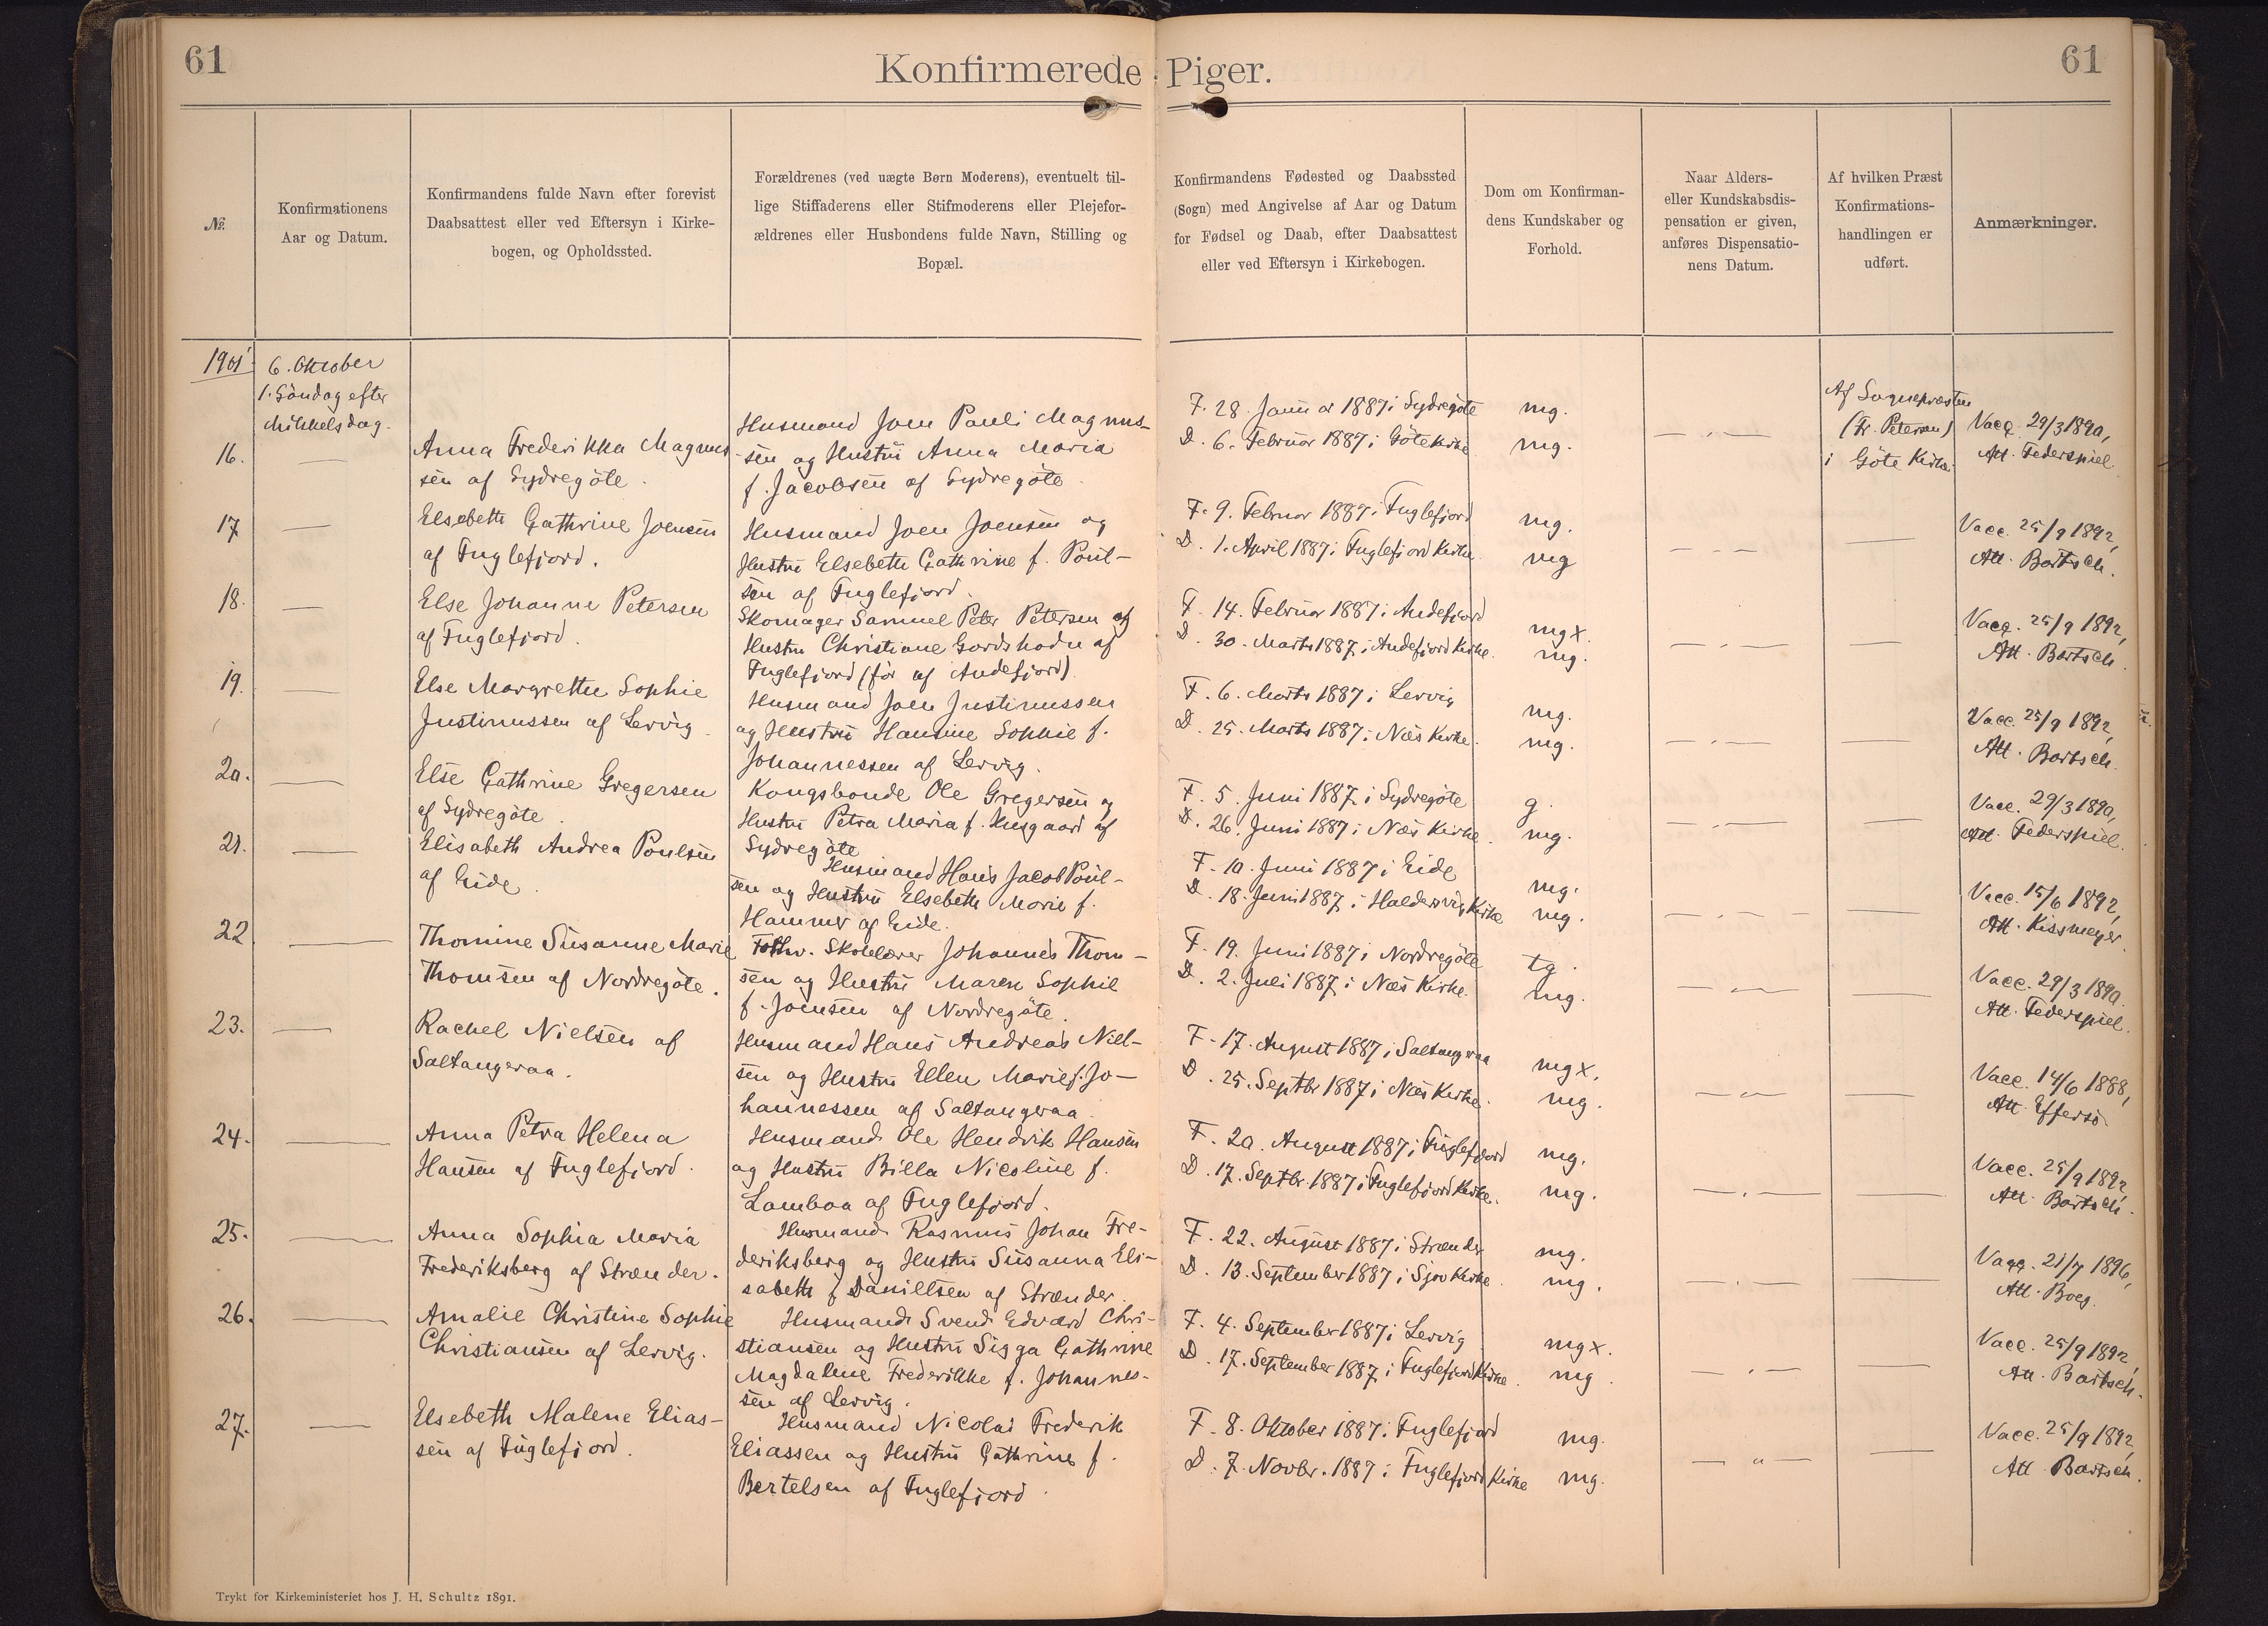 61
Konfirmerede Piger.
61
№.
Konfirmationens
Aar og Datum.
Konfirmandens fulde Navn efter forevist
Daabsattest eller ved Eftersyn i Kirke-
bogen, og Opholdssted.
Forældrenes (ved uægte Børn Moderens), eventuelt til-
lige Stiffaderens eller Stifmoderens eller Plejefor-
ældrenes eller Husbondens fulde Navn, Stilling og
Bopæl.
Konfirmandens Fødested og Daabssted
(Sogn) med Angivelse af Aar og Datum
for Fødsel og Daab, efter Daabsattest
eller ved Eftersyn i Kirkebogen.
Dom om Konfirman-
dens Kundskaber og
Forhold.
Naar Alders-
eller Kundskabsdis-
pensation er given,
anføres Dispensatio-
nens Datum.
Af hvilken Præst
Konfirmations-
handlingen er
udført.
Anmærkninger.
1901
6. Oktober
1. Söndag efter
Mikkelsdag.
16.
Anna Frederikka Magnus-
sen af Sydregöte.
Husmand Joen Pauli Magnus-
sen og Hustru Anna Maria
f. Jacobsen af Sydregöte.
F. 28. Januar 1887 i Sydregöte
D. 6. Februar 1887 i Göte Kirke
mg.
mg.
Af Sognepræsten
(Fr. Petersen)
i Göte Kirke.
Vacc. 29/3 1890,
Att. Federspiel.
17
Elsebeth Cathrine Joensen
af Fuglefjord.
Husmand Joen Joensen og
Hustru Elsebeth Cathrine f. Poul-
sen af Fuglefjord.
F. 9. Februar 1887 i Fuglefjord
D. 1. April 1887 i Fuglefjord Kirke.
mg.
mg
Vacc. 25/9 1892,
Att. Bartsch.
18.
Else Johanne Petersen
af Fuglefjord.
Skomager Samuel Peter Petersen og
Hustru Christiane Gardshodn af
Fuglefjord (för af Andefjord)
F. 14. Februar 1887 i Andefjord
D. 30. Marts 1887 i Andefjord Kirke.
mg x.
mg.
Vacc. 25/9 1892,
Att. Bartsch.
19.
Else Margrethe Sophie
Justinussen af Lervig.
Husmand Joen Justinussen
og Hustru Hansine Sophie f.
Johannessen af Lervig.
F. 6. Marts 1887 i Lervig
D. 25. Marts 1887 i Næs Kirke.
mg.
mg.
Vacc. 25/9 1892,
Att. Bartsch.
20.
Else Cathrine Gregersen
af Sydregöte.
Kongsbonde Ole Gregersen og
Hustru Petra Maria f. Husgaard af
Sydregöte
F. 5. Juni 1887 i Sydregöte
D. 26. Juni 1887 i Næs Kirke.
g.
mg.
Vacc. 29/3 1890,
Att. Federspiel.
21.
Elisabeth Andrea Poulsen
af Eide.
Husmand Hans Jacob Poul-
sen og Hustru Elsebeth Marie f.
Hammer af Eide.
F. 10. Juni 1887 i Eide
D. 18. Juni 1887 i Haldersvig Kirke
mg.
mg.
Vacc. 15/6 1892,
Att. Kissmeyer.
22
Thomine Susanne Marie
Thomsen af Nordregöte.
Skolelærer Johannes Thom-
sen og Hustru Maren Sophie
f. Joensen af Nordregöte.
F. 19. Juni 1887 i Nordregöte
D. 2. Juli 1887 i Næs Kirke.
tg.
mg.
Vacc. 29/3 1890.
Att. Federspiel.
23.
Rachel Nielsen af
Saltangeraa.
Husmand Hans Andreas Niel-
sen og Hustru Ellen Marie f. Jo-
hannessen af Saltangeraa.
F. 17. August 1887 i Saltangeraa
D. 25. Septbr 1887 i Næs Kirke.
mg x.
mg.
Vacc. 14/6 1888,
Att. Effersö.
24.
Anna Petra Helena
Hansen af Fuglefjord.
Husmand Ole Hendrik Hansen
og Hustru Billa Nicoline f.
Lamboa af Fuglefjord.
F. 20. August 1887 i Fuglefjord
D. 17. Septbr. 1887 i Fuglefjord Kirke.
mg.
mg.
Vacc. 25/9 1892,
Att. Bartsch.
25.
Anna Sophia Maria
Frederiksberg af Strænder.
Husmand Rasmus Johan Fre-
deriksberg og Hustru Susanna Eli-
sabeth f. Daniellsen af Strænder.
F. 22. August 1887 i Strænder
D. 13. September 1887 i Sjov Kirke.
mg.
mg.
Vacc. 21/7 1896,
Att. Boeg.
26.
Amalie Christine Sophie
Christiansen af Lervig.
Husmand Svend Edvard Chri-
stiansen og Hustru Sigga Cathrine
Magdalene Frederikke f. Johannes-
sen af Lervig.
F. 4. September 1887 i Lervig
D. 17. September 1887 i Fuglefjord Kirke.
mg x.
mg.
Vacc. 25/9 1892,
Att. Bartsch.
27.
Elsebeth Malene Elias-
sen af Fuglefjord.
Husmand Nicolai Frederik
Eliassen og Hustru Cathrine f.
Bertelsen af Fuglefjord.
F. 8. Oktober 1887 i Fuglefjord
D. 7. Novbr. 1887 i Fuglefjord Kirke
mg.
mg.
Vacc. 25/9 1892,
Att. Bartsch.
Trykt for Kirkeministeriet hos J. H. Schultz 1891.